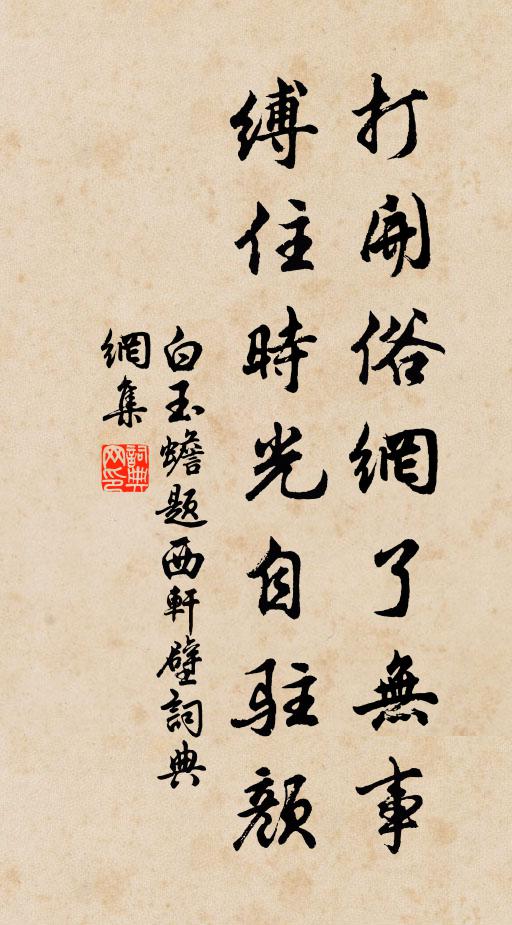 打開俗網了無事
縛住時光自駐顏
白玉蟾題西軒壁詞典
網集
詞典網印